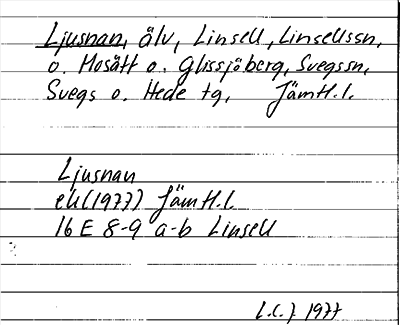 Ljusnan, älv, Linsell, Linsellssn,
o. Mosätt o. Glissjöberg, Svegssn,
Svegs o. Hede tg, Jämtl.l.
Ljusnan
ek (1977) Jämtl.l.
16 E 8-9 a-b Linsell
1977